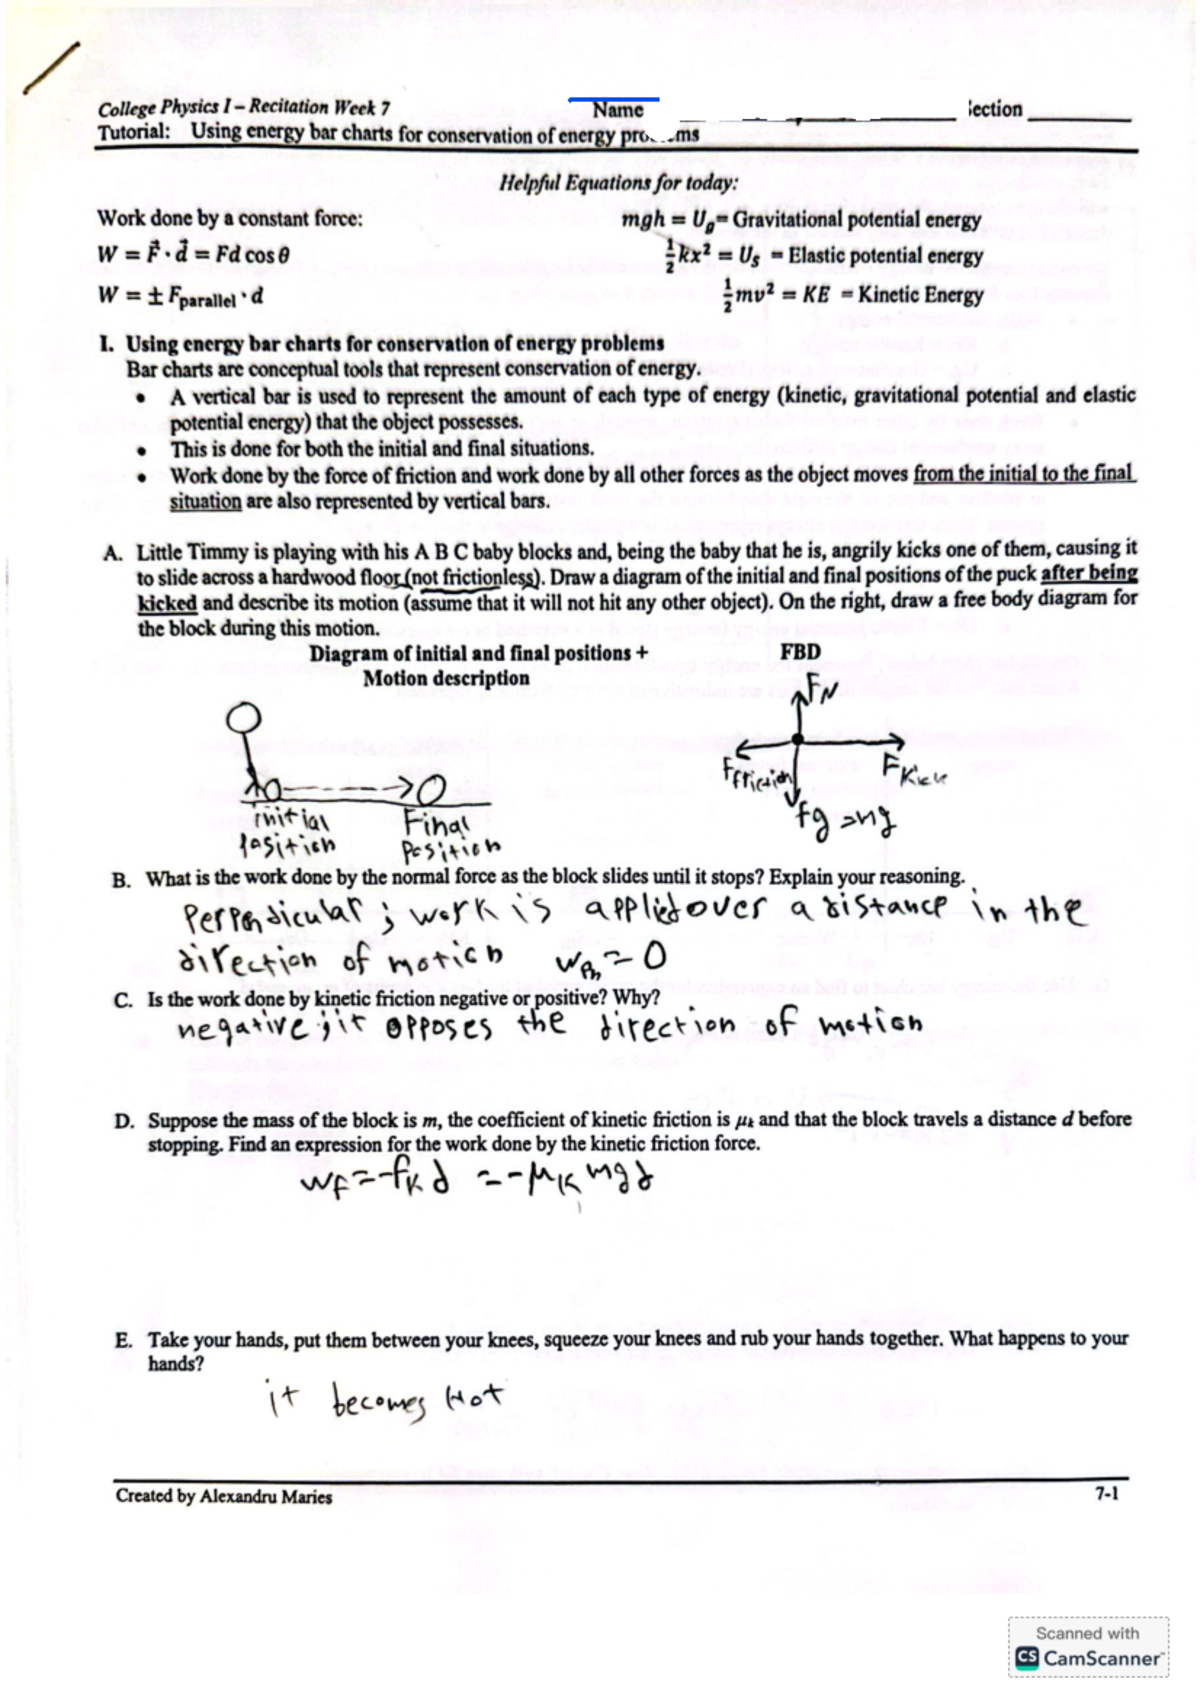 College Physics I – Recitation Week 7 Name Section
Tutorial: Using energy bar charts for conservation of energy problems
Helpful Equations for today:
Work done by a constant force: mgh = U_g = Gravitational potential energy
W = F⃗ · d⃗ = Fd cos θ ½kx² = U_s = Elastic potential energy
W = ± F_parallel · d ½mv² = KE = Kinetic Energy
I. Using energy bar charts for conservation of energy problems
Bar charts are conceptual tools that represent conservation of energy.
• A vertical bar is used to represent the amount of each type of energy (kinetic, gravitational potential and elastic
potential energy) that the object possesses.
• This is done for both the initial and final situations.
• Work done by the force of friction and work done by all other forces as the object moves from the initial to the final
situation are also represented by vertical bars.
A. Little Timmy is playing with his A B C baby blocks and, being the baby that he is, angrily kicks one of them, causing it
to slide across a hardwood floor (not frictionless). Draw a diagram of the initial and final positions of the puck after being
kicked and describe its motion (assume that it will not hit any other object). On the right, draw a free body diagram for
the block during this motion.
Diagram of initial and final positions + FBD
Motion description
F_N
F_friction F_Kick
initial Final
Position Position
Fg = mg
B. What is the work done by the normal force as the block slides until it stops? Explain your reasoning.
Perpendicular ; work is applied over a distance in the
direction of motion = 0
C. Is the work done by kinetic friction negative or positive? Why?
negative ; it opposes the direction of motion
D. Suppose the mass of the block is m, the coefficient of kinetic friction is μ_k and that the block travels a distance d before
stopping. Find an expression for the work done by the kinetic friction force.
W_F = -f_K d = -μ_K mgd
E. Take your hands, put them between your knees, squeeze your knees and rub your hands together. What happens to your
hands?
it becomes Hot
Created by Alexandru Maries 7-1
Scanned with
CS CamScanner